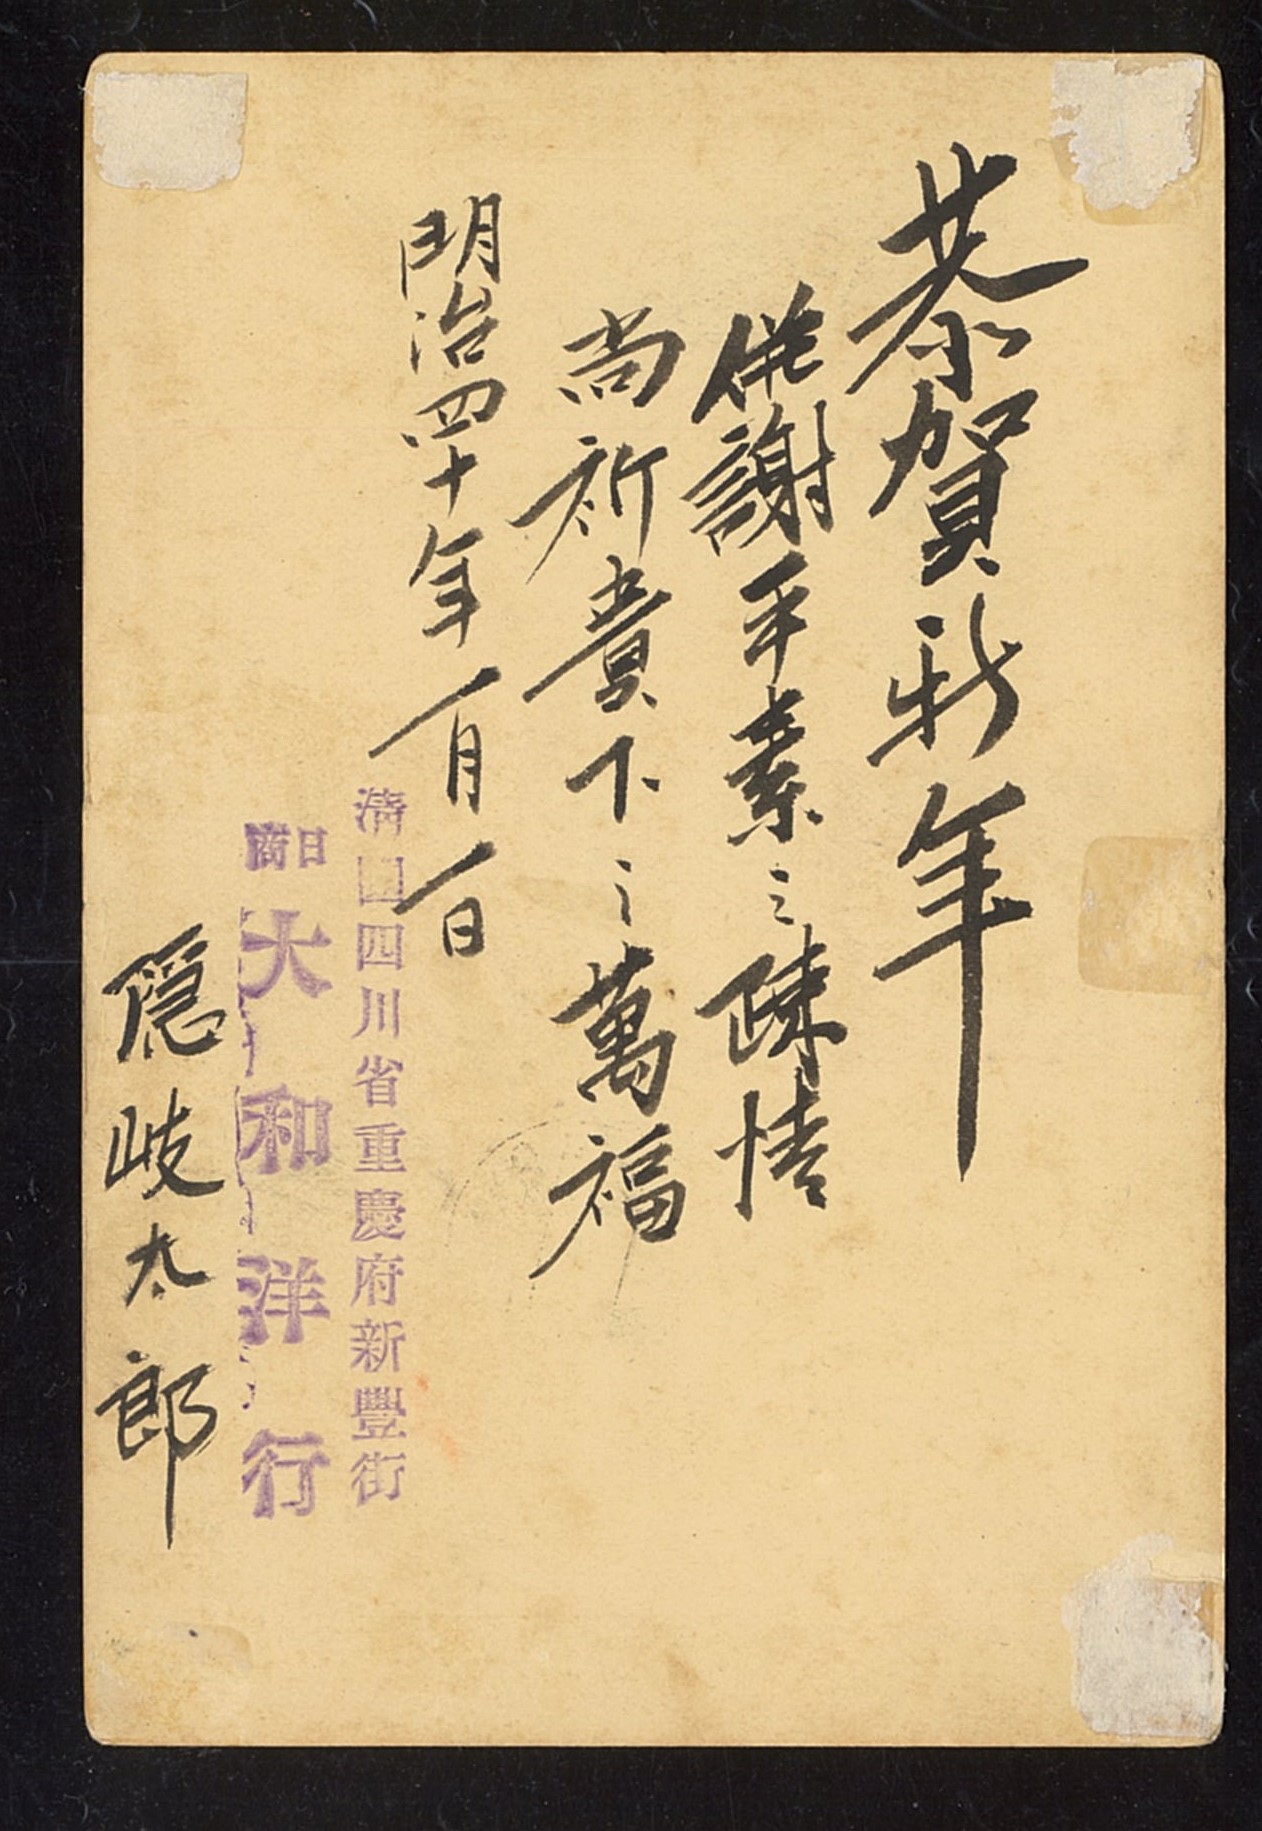 恭賀新年
併謝平素之疎情
尚祈貴下之萬福
明治四十年一月一日
清国四川省重慶府新豐街
日商
大和洋行
隠岐太郎